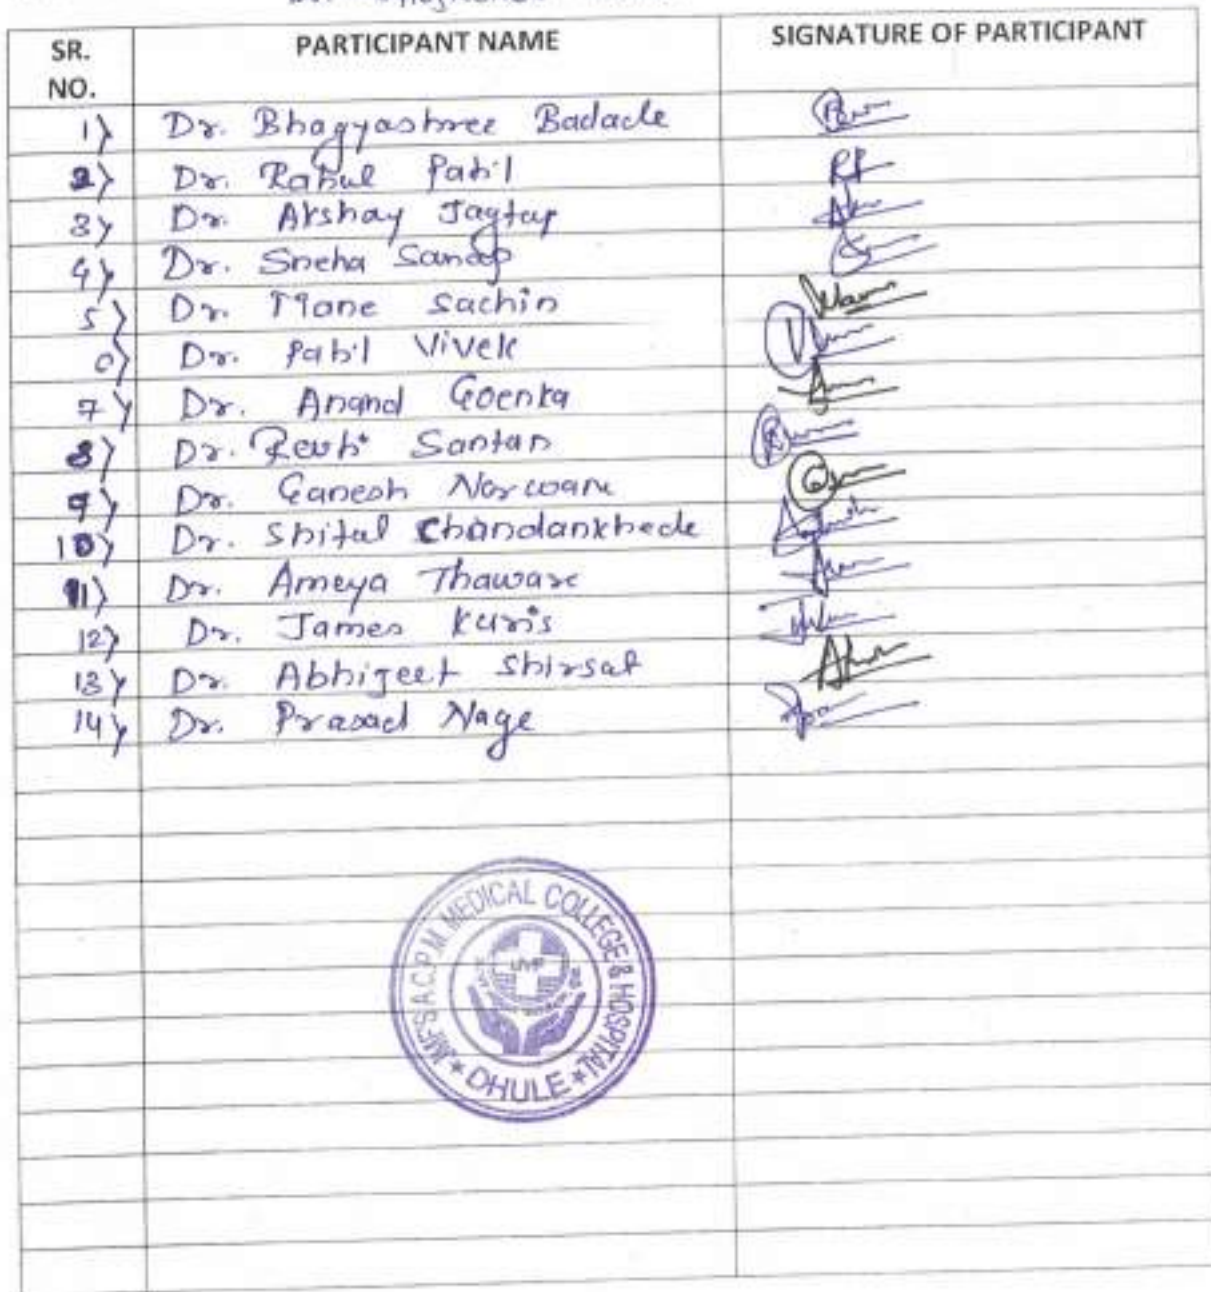 SR. NO. PARTICIPANT NAME SIGNATURE OF PARTICIPANT
1) Dr. Bhagyashree Badade
2) Dr. Rahul Patil
3) Dr. Akshay Jagtap
4) Dr. Sneha Sandip
5) Dr. Mane Sachin
6) Dr. Patil Vivek
7) Dr. Anand Goenka
8) Dr. Santan
9) Dr. Ganesh
10) Dr. Shital Chandankhede
11) Dr. Ameya Thaware
12) Dr. James Kuris
13) Dr. Abhijeet Shirsat
14) Dr. Prasad Nage
JMF'S A.C.P.M. MEDICAL COLLEGE & HOSPITAL
* DHULE *